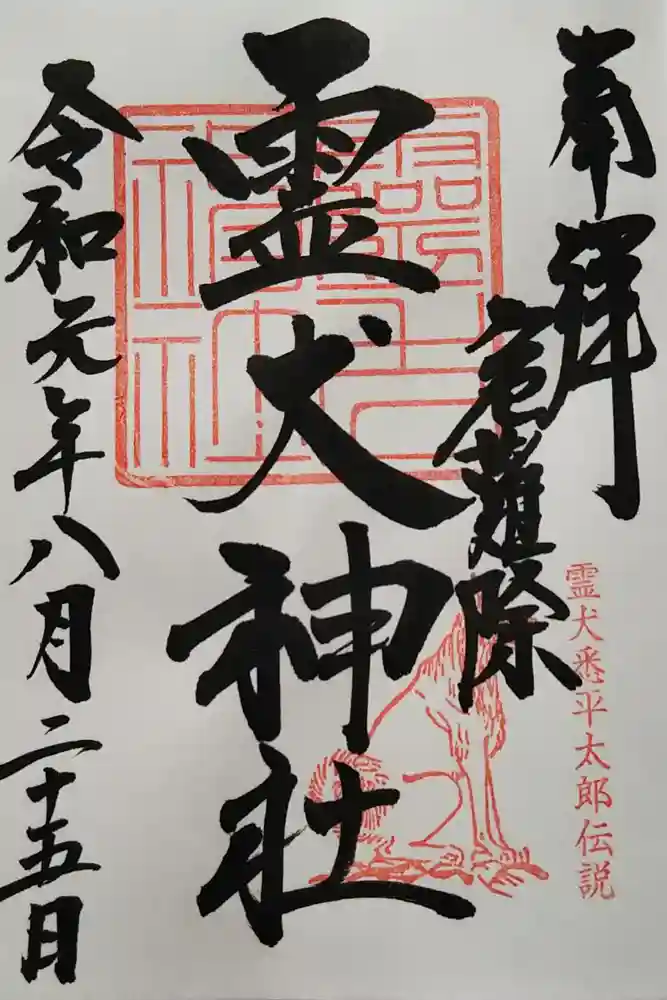 奉拝
危難除
霊犬神社
霊犬悉平太郎伝説
令和元年八月二十五日